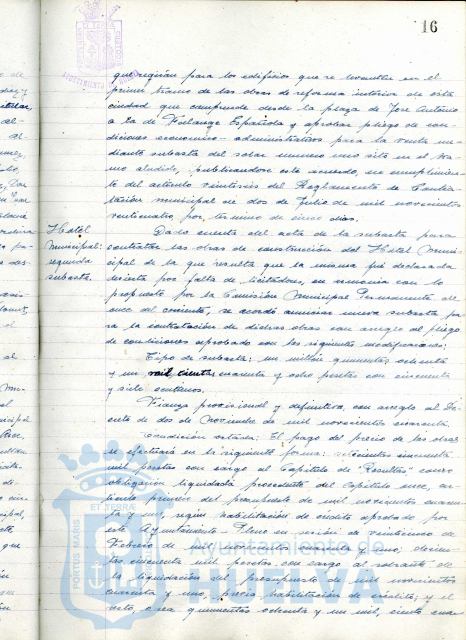 16
que regirán para los edificios que se levanten en el
primer tramo de las obras de reforma interior de esta
ciudad que comprende desde la plaza de José Antonio
a la de Falange Española y aprobar pliego de con-
diciones económico-administrativas para la venta me-
diante subasta del solar número uno sito en el tra-
mo aludido, publicándose este acuerdo, en cumplimien-
to del artículo veintiséis del Reglamento de Contra-
tación municipal de dos de Julio de mil novecientos
veinticuatro, por término de cinco días.
Hotel
Municipal:
subasta.
Dado cuenta del acta de la subasta para
contratar las obras de construcción del Hotel Muni-
cipal de la que resulta que la misma fué declarada
desierta por falta de licitadores, en armonía con lo
propuesto por la Comisión Municipal Permanente el
once del corriente, se acordó anunciar nueva subasta pa-
ra la contratación de dichas obras con arreglo al pliego
de condiciones aprobado con las siguientes modificaciones:
Tipo de subasta: un millón quinientas ochenta
y un mil cientas cuarenta y ocho pesetas con cincuenta
y siete céntimos.
Fianza provisional y definitiva, con arreglo al De-
creto de dos de Noviembre de mil novecientos cuarenta.
Condición octava: El pago del precio de las obras
se efectuará en la siguiente forma: cincuenta
mil pesetas con cargo al Capítulo de "Resultas" como
obligación liquidada procedente del Capítulo once, ar-
tículo primero del presupuesto de mil novecientos cuaren-
ta y uno, según habilitación de crédito aprobada por
este Ayuntamiento Pleno en sesión de veintiuno de
Febrero de mil novecientos cuarenta y uno; doscien-
tas cincuenta mil pesetas con cargo al sobrante de
la liquidación del presupuesto de mil novecientos
cuarenta y uno, previa habilitación de crédito; y el
resto, o sea quinientas ochenta y un mil, ciento cua-
PORTUS MARIS
ET TERRÆ
Ayuntamiento de
HUELVA